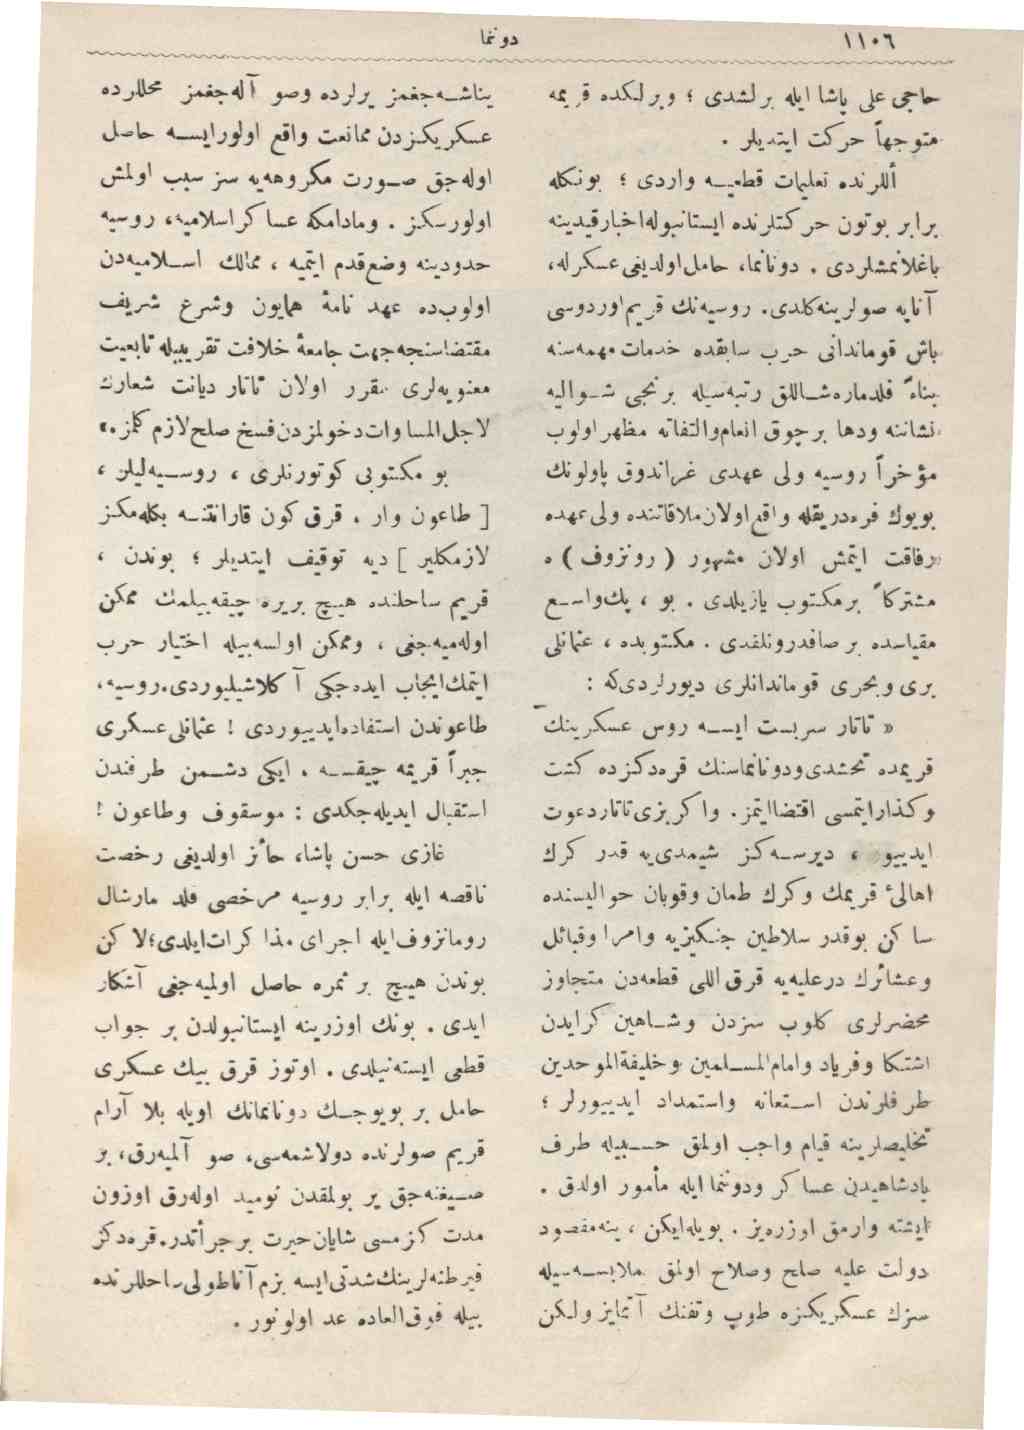 ١١٠٦
دوننما
حاجی علی پاشا ایله برلشدی ؛ وبرلکده قریمه
متوجهاً حرکت ایتدیلر .
أللرنده تعلیمات قطعیــه واردی ؛ بونکله
برابر بوتون حرکتلرنده ایستانبوله اخبارقیدینه
باغلانمشلردی . دونانما، حامل اولدیغی عسکرله،
آناپه صولرینه کلدی. روسیه نك قریم اوردوسی
باش قوماندانی حرب سابقده خدمات مهمه سنه
بناءً فلدماره شــاللق رتبه سیله برنجی شــوالیه
نشاننه ودها برچوق انعام والتفاته مظهر اولوب
مؤخراً روسیه ولی عهدی غراندوق پاولونك
بویوك فره دریقله واقع اولان ملاقاتنده ولی عهده
رفاقت ایتمش اولان مشهور ( رونزوف ) ه
مشترکاً برمکتوب یازیلدی . بو ، پك واســع
مقیاسده بر صافدرونلقدی . مکتوبده ، عثمانلی
بری وبحری قوماندانلری دیورلردی که :
« تاتار سربست ایســه روس عسکرینك
قریمده تحشدی ودونانماسنك قره دکزده کشت
وکذار ایتمسی اقتضا ایتمز . واکر بزی تاتار دعوت
ایدییو ، دیرســه کز شیمدی یه قدر کرك
اهالیٔ قریمك وکرك طمان وقوبان حوالیسنده
ساکن بوقدر سلاطین جنکیزیه وامرا وقبائل
وعشائرك درعلیه یه قرق اللی قطعه دن متجاوز
محضرلری کلوب سزدن وشــاهین کرایدن
اشتکا وفریاد وامام المســلمین وخلیفة الموحدین
طرفلرندن اســتعانه واستمداد ایدییورلر ؛
تخلیصلرینه قیام واجب اولمق حســبیله طرف
پادشاهیدن عساکر ودوننما ایله مأمور اولدق .
ایشته وارمق اوزره یز . بویله ایکن ، ینه مقصود
دولت علیه صلح وصلاح اولمق ملابســه سیله
سزك عسکریکزه طوپ وتفنك آتمایز ولکن
یناشــه جغمز یرلرده وصو آله جغمز محللرده
عسکریکزدن ممانعت واقع اولورایســه حاصل
اوله جق صــورت مکروهه یه سز سبب اولمش
اولورسکز . ومادامکه عساکر اسلامیه، روسیه
حدودینه وضع قدم ایتمیه ، ممالك اســلامیه دن
اولوب ده عهد نامهٔ همایون وشرع شریف
مقتضاسنجه جهت جامعهٔ خلافت تقریبیله تابعیت
معنویه لری مقرر اولان تاتار دیانت شعارك
لاجل المساوات دخولمزدن فسخ صلح لازم کلمز .»
بو مکتوبی کوتورنلری ، روســیه لیلر ،
[ طاعون وار . قرق کون قارانتنــه بکله مکز
لازمکلیر ] دیه توقیف ایتدیلر ؛ بوندن ،
قریم ساحلنده هیــچ بریره چیقه بیلمك ممکن
اوله میه جغی ، وممکن اولسه بیله اختیار حرب
ایتمك ایجاب ایده جکی آکلاشیلیوردی. روسیه،
طاعوندن استفاده ایدییوردی ! عثمانلی عسکری
جبراً قریمه چیقســه ، ایکی دشــمن طرفندن
استقبال ایدیله جکدی : موسقوف وطاعون !
غازی حسن پاشا، حائز اولدیغی رخصت
ناقصه ایله برابر روسیه مرخصی فلد مارشال
رومانزوف ایله اجرای مذاکرات ایلدی؛ لاکن
بوندن هیــچ بر ثمره حاصل اولمیه جغی آشکار
ایدی . بونك اوزرینه ایستانبولدن بر جواب
قطعی ایسته نیلدی . اوتوز قرق بیك عسکری
حامل بر بویوجــك دونانمانك اویله بلا آرام
قریم صولرنده دولاشمه سی، صو آلمیه رق، بر
صــیغنه جق یر بولمقدن نومید اوله رق اوزون
مدت کزمسی شایان حیرت برجرأتدر. قره دکز
فیرطنه لرینك شدتی ایسه بزم آناطولی ساحللرنده
بیله فوق العاده عد اولونور .